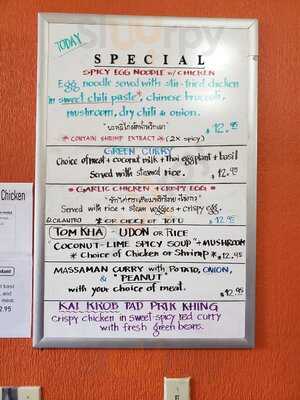 TODAY
SPECIAL
SPICY EGG NOODLE w/ CHICKEN
Egg noodle served with stir-fried chicken
in sweet chili paste, chinese broccoli,
mushroom, dry chili & onion.
$12.95
* CONTAIN SHRIMP EXTRACT * (2x spicy)
GREEN CURRY
Choice of meat + coconut milk + Thai eggplant + basil
Served with steamed rice. $12.95
GARLIC CHICKEN + CRISPY EGG
Served with rice + steam veggies + crispy egg.
CILANTRO * OR CHOICE OF TOFU $12.95
TOM KHA - UDON OR RICE
"COCONUT-LIME SPICY SOUP" + MUSHROOM
* Choice of Chicken or Shrimp * $12.95
MASSAMAN CURRY with POTATO, ONION,
& "PEANUT"
with your choice of meat. $12.95
KAI KROB PAD PRIK KHING
crispy chicken in sweet-spicy red curry
with fresh green beans.
Chicken